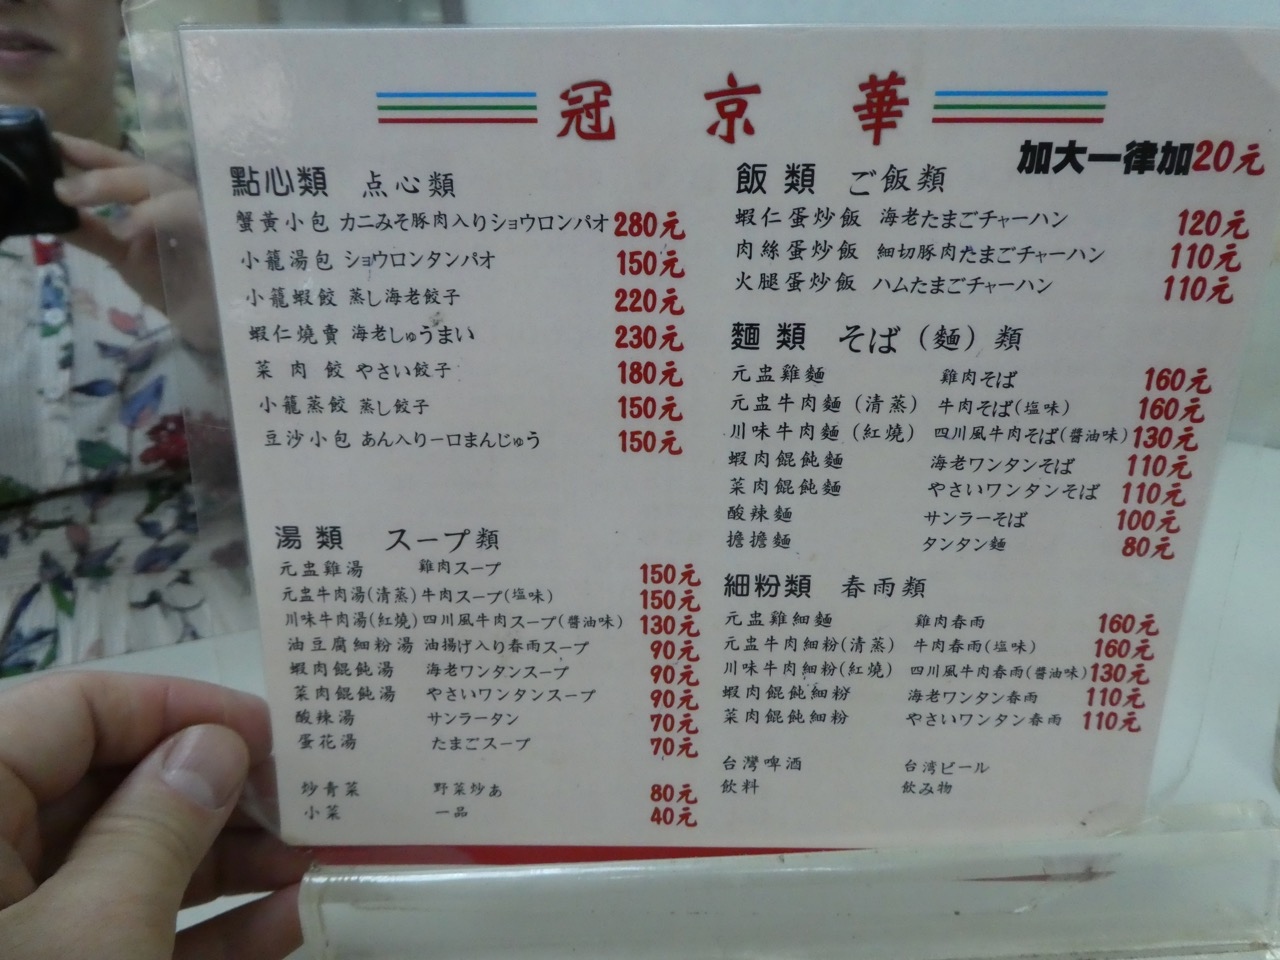 冠 京 華
加大一律加20元
點心類 点心類
蟹黃小包 カニみそ豚肉入りショウロンパオ 280元
小籠湯包 ショウロンタンパオ 150元
小籠蝦餃 蒸し海老餃子 220元
蝦仁燒賣 海老しゅうまい 230元
菜肉餃 やさい餃子 180元
小籠蒸餃 蒸し餃子 150元
豆沙小包 あん入り一口まんじゅう 150元
湯類 スープ類
元盅雞湯 雞肉スープ 150元
元盅牛肉湯(清蒸) 牛肉スープ(塩味) 150元
川味牛肉湯(紅燒) 四川風牛肉スープ(醬油味) 130元
油豆腐細粉湯 油揚げ入り春雨スープ 90元
蝦肉餛飩湯 海老ワンタンスープ 90元
菜肉餛飩湯 やさいワンタンスープ 90元
酸辣湯 サンラータン 70元
蛋花湯 たまごスープ 70元
炒青菜 野菜炒あ 80元
小菜 一品 40元
飯類 ご飯類
蝦仁蛋炒飯 海老たまごチャーハン 120元
肉絲蛋炒飯 細切豚肉たまごチャーハン 110元
火腿蛋炒飯 ハムたまごチャーハン 110元
麵類 そば(麵)類
元盅雞麵 雞肉そば 160元
元盅牛肉麵(清蒸) 牛肉そば(塩味) 160元
川味牛肉麵(紅燒) 四川風牛肉そば(醬油味) 130元
蝦肉餛飩麵 海老ワンタンそば 110元
菜肉餛飩麵 やさいワンタンそば 110元
酸辣麵 サンラーそば 100元
擔擔麵 タンタン麵 80元
細粉類 春雨類
元盅雞細麵 雞肉春雨 160元
元盅牛肉細粉(清蒸) 牛肉春雨(塩味) 160元
川味牛肉細粉(紅燒) 四川風牛肉春雨(醬油味) 130元
蝦肉餛飩細粉 海老ワンタン春雨 110元
菜肉餛飩細粉 やさいワンタン春雨 110元
台灣啤酒 台湾ビール
飲料 飲み物